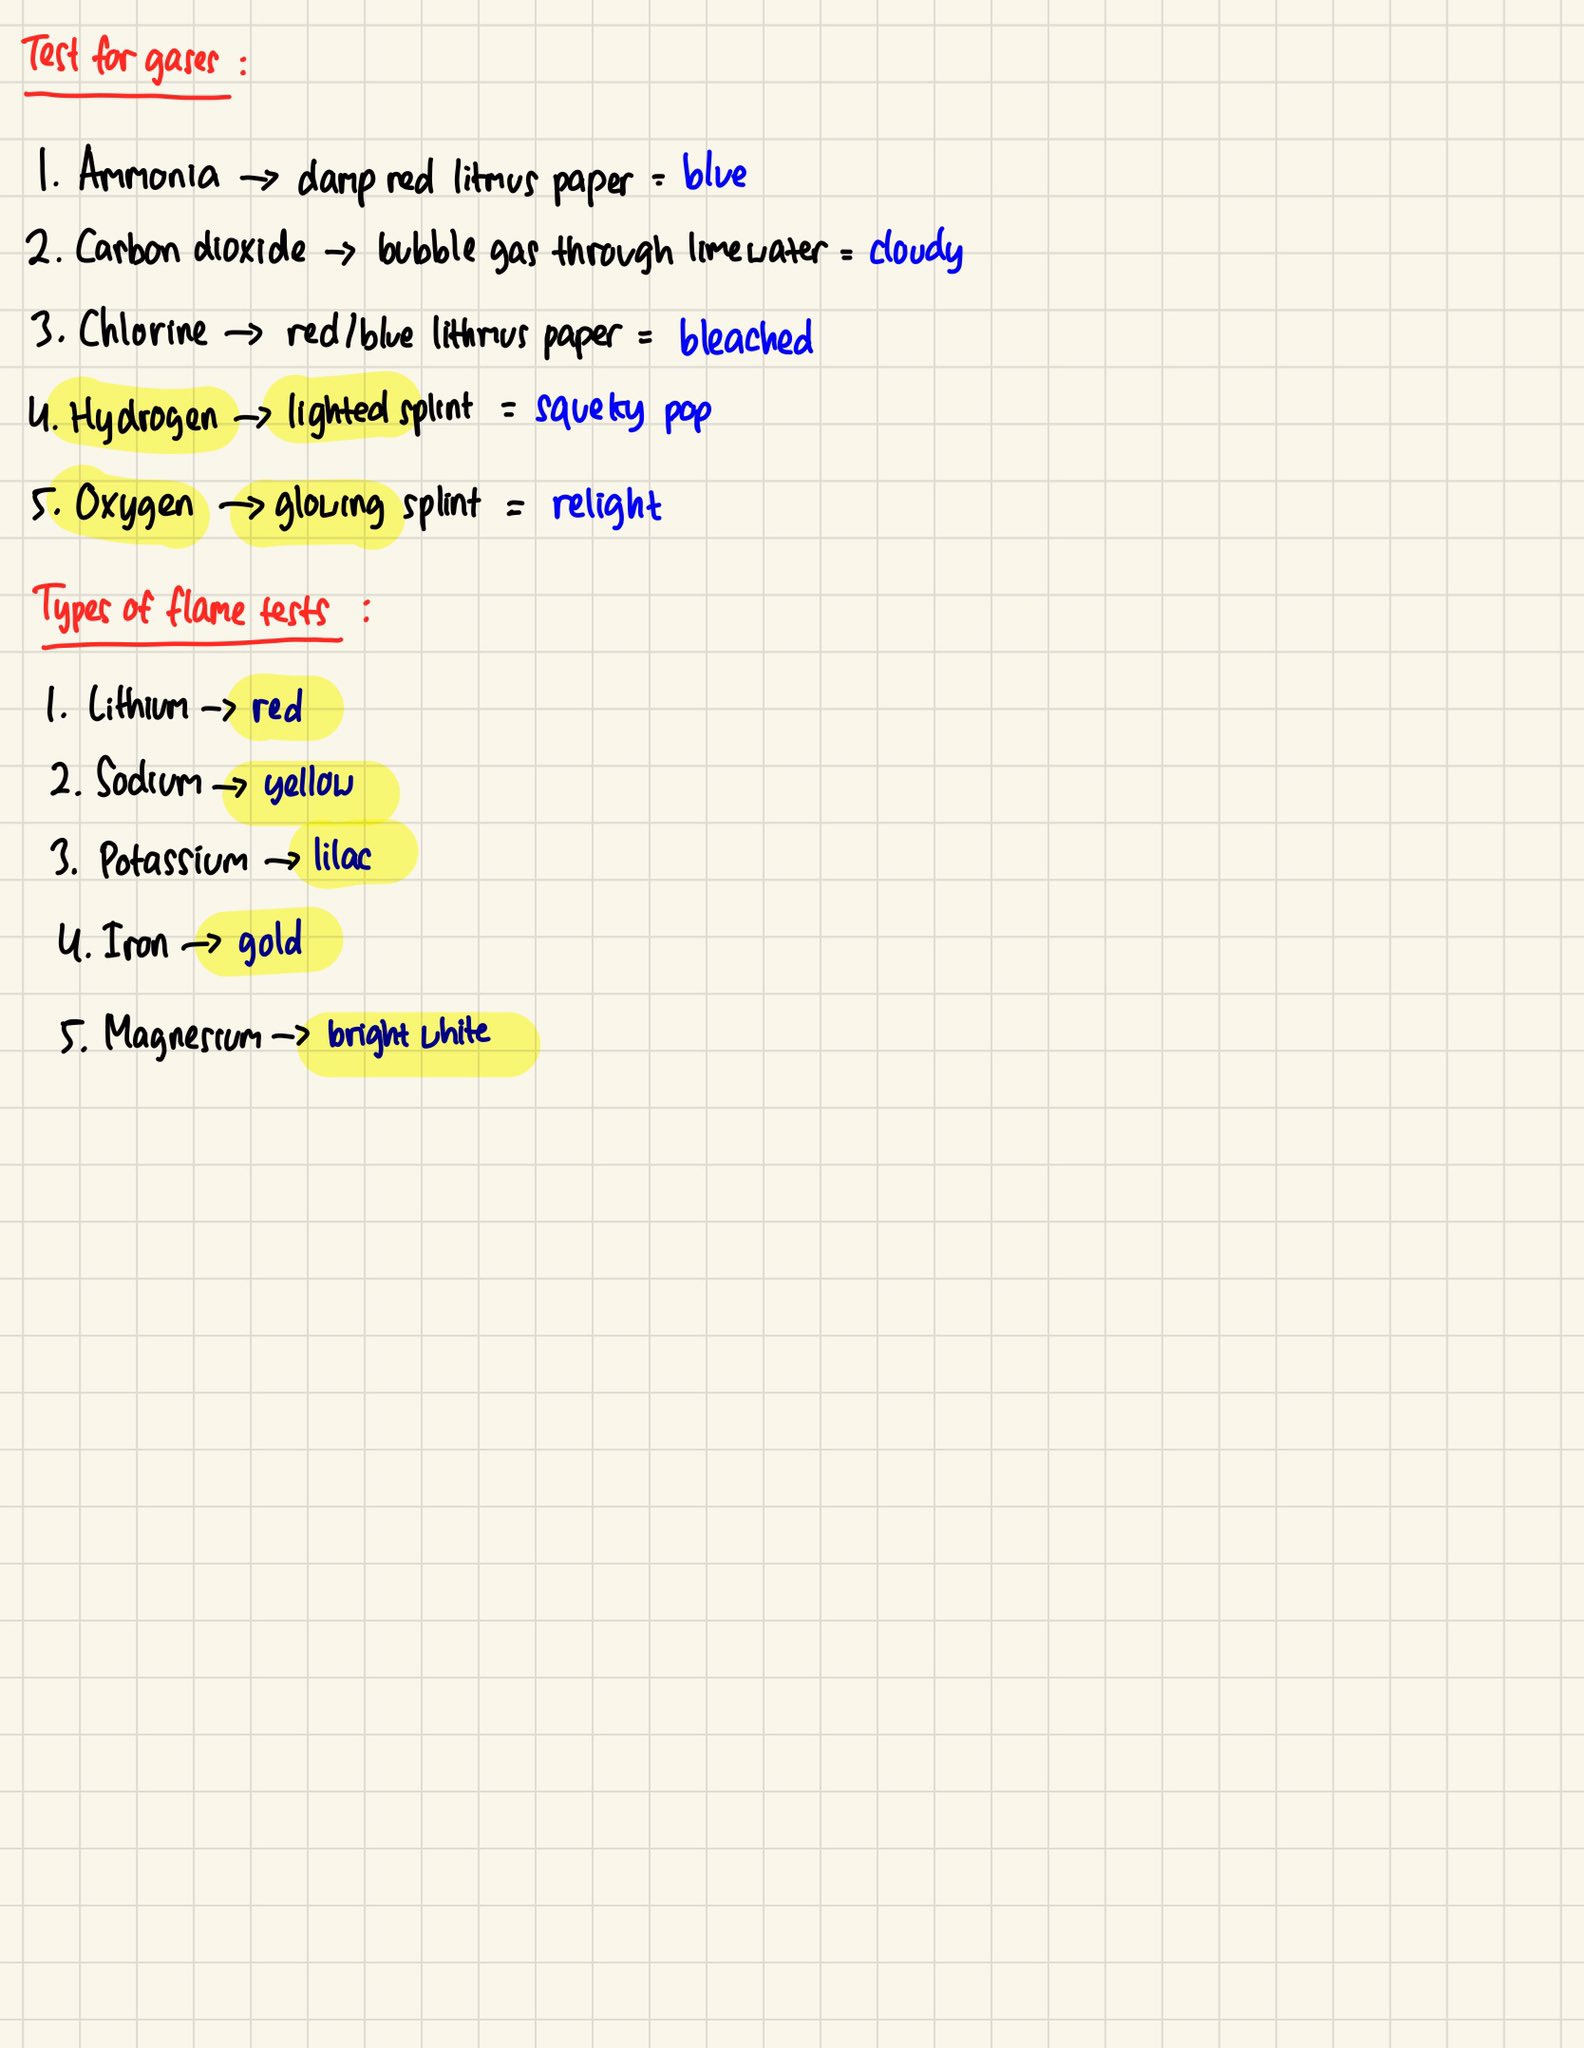 Test for gases :
1. Ammonia → damp red litmus paper = blue
2. Carbon dioxide → bubble gas through limewater = cloudy
3. Chlorine → red/blue lithmus paper = bleached
4. Hydrogen → lighted splint = squeky pop
5. Oxygen → glowing splint = relight
Types of flame tests :
1. Lithium → red
2. Sodium → yellow
3. Potassium → lilac
4. Iron → gold
5. Magnesium → bright white